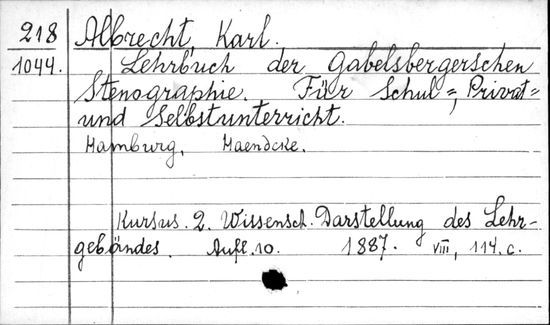 218 Albrecht, Karl.
1044. Lehrbuch der Gabelsbergerschen
Stenographie. Für Schul=, Privat=
und Selbstunterricht.
Hamburg, Haendcke.
Kursus. 2. Wissensch. Darstellung des Lehr-
gebändes. Aufl. 10. 1887. VIII, 114. c.